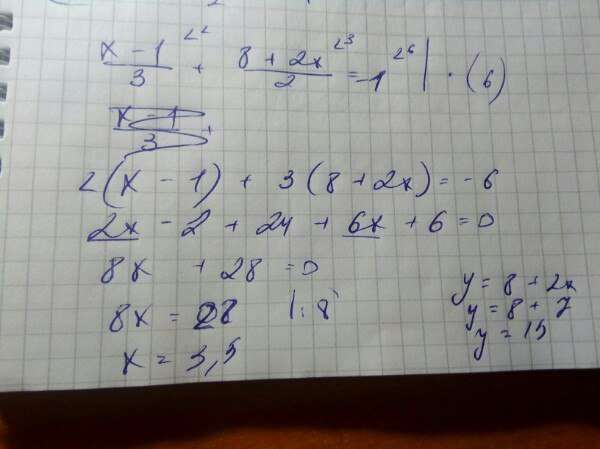 x - 1 / 3 ⌞2 + 8 + 2x / 2 ⌞3 = -1 ⌞6 | · (6)
2(x - 1) + 3(8 + 2x) = -6
2x - 2 + 24 + 6x + 6 = 0
8x + 28 = 0
8x = 28 | : 8
x = 3,5
y = 8 + 2x
y = 8 + 7
y = 15